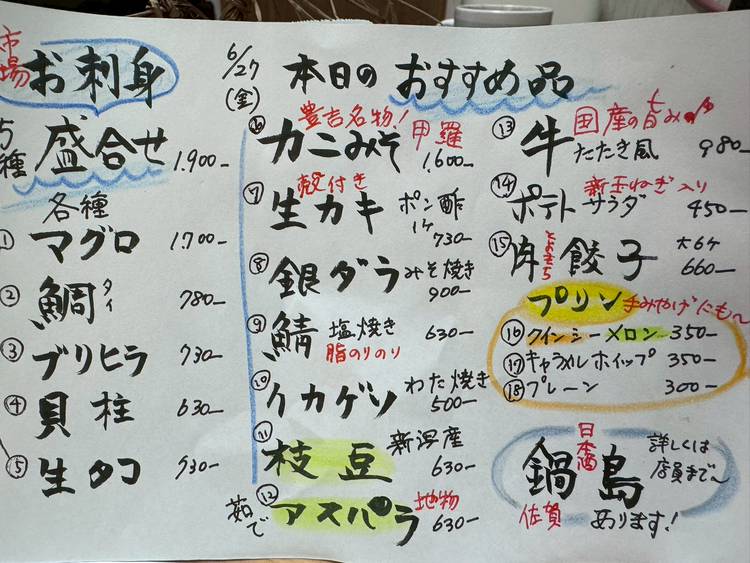 市場
お刺身
5種
盛合せ 1,900-
各種
① マグロ 1,700-
② 鯛 タイ 780-
③ ブリヒラ 730-
④ 貝柱 630-
⑤ 生タコ 730-
6/27
(金)
本日のおすすめ品
豊吉名物! 甲羅
⑥ カニみそ 1,600-
殻付き
⑦ 生カキ ポン酢
1ケ 730-
⑧ 銀ダラ みそ焼き
900-
⑨ 鯖 塩焼き 630-
脂のりのり
⑩ イカゲソ わた焼き
500-
⑪ 枝豆 新潟産
630-
茹で
⑫ アスパラ 地物
630-
国産の旨み
⑬ 牛 たたき風 980-
新玉ねぎ入り
⑭ ポテトサラダ 450-
⑮ 肉 とよきち 餃子 大6ケ
660-
プリン 手みやげにも~
⑯ クインシーメロン 350-
⑰ キャラメルホイップ 350-
⑱ プレーン 300-
日本酒
鍋島 詳しくは
店員まで~
佐賀 あります!